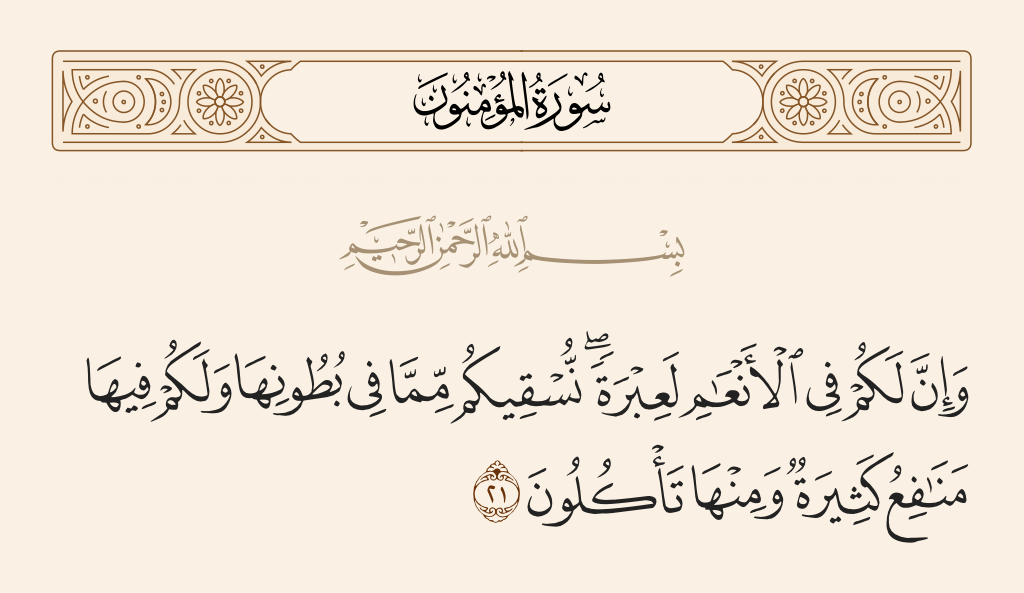 سُورَةُ الْمُؤْمِنُونَ
بِسْمِ ٱللَّهِ ٱلرَّحْمَٰنِ ٱلرَّحِيمِ
وَإِنَّ لَكُمْ فِى ٱلْأَنْعَٰمِ لَعِبْرَةًۖ نُّسْقِيكُم مِّمَّا فِى بُطُونِهَا وَلَكُمْ فِيهَا
مَنَٰفِعُ كَثِيرَةٌ وَمِنْهَا تَأْكُلُونَ ٢١